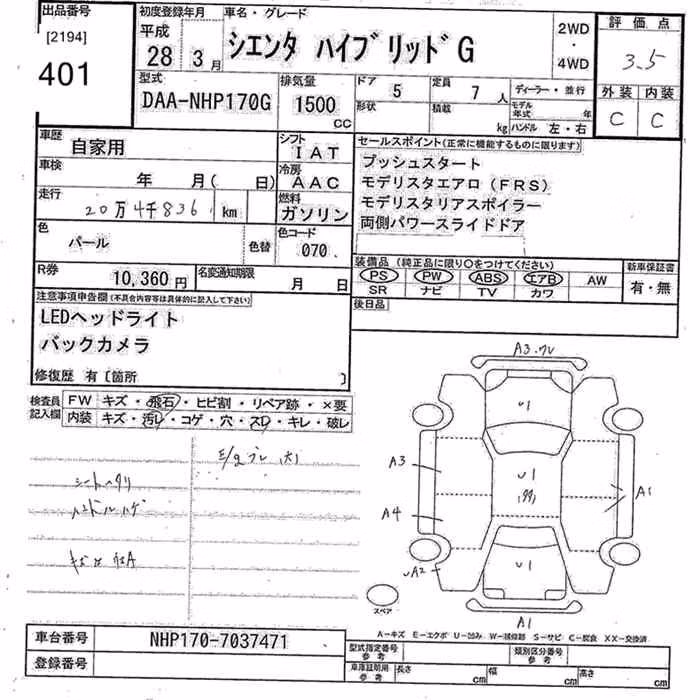 出品番号
[2194]
401
初度登録年月
平成
28 3月
車名・グレード
シエンタ ハイブリッドG
2WD
・
4WD
評価点
3.5
外装 内装
C C
型式
DAA-NHP170G
排気量
1500
CC
ドア 5
定員 7人
形状
積載 kg
ディーラー・並行
モデル年式 年
ハンドル 左・右
車歴 自家用
シフト IAT
車検 年 月( 日)
冷房 AAC
走行 20万4千836 km
燃料 ガソリン
色 パール 色替
色コード 070
R券 10,360円
名変通知期限 月 日
セールスポイント(正常に機能するものに限ります)
プッシュスタート
モデリスタエアロ(FRS)
モデリスタリアスポイラー
両側パワースライドドア
装備品(純正品に限り○をつけてください)
新車保証書
PS PW ABS エアB AW
SR ナビ TV カワ
有・無
後日品
注意事項申告欄(不具合内容等は具体的に記入して下さい)
LEDヘッドライト
バックカメラ
修復歴 有[箇所 ]
検査員記入欄
FW キズ・飛石・ヒビ割・リペア跡・×要
内装 キズ・汚レ・コゲ・穴・スレ・キレ・破レ
シートヘタリ
ハンドルハゲ
A3
U1
U1
A3
A1
A4
UA2
U1
A1
スペア
A-キズ E-エクボ U-凹み W-補修跡 S-サビ C-腐食 XX-交換済
車台番号 NHP170-7037471
登録番号
型式指定番号 参考
類別区分番号 参考
車庫証明用 参考
長さ cm 幅 cm 高さ cm